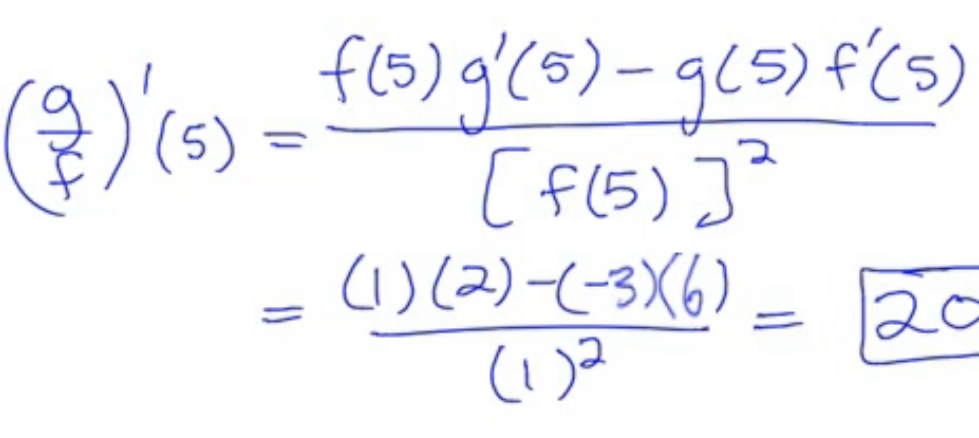 (g/f)'(5) = f(5)g'(5) - g(5)f'(5) / [f(5)]²
= (1)(2)-(-3)(6) / (1)² = 20